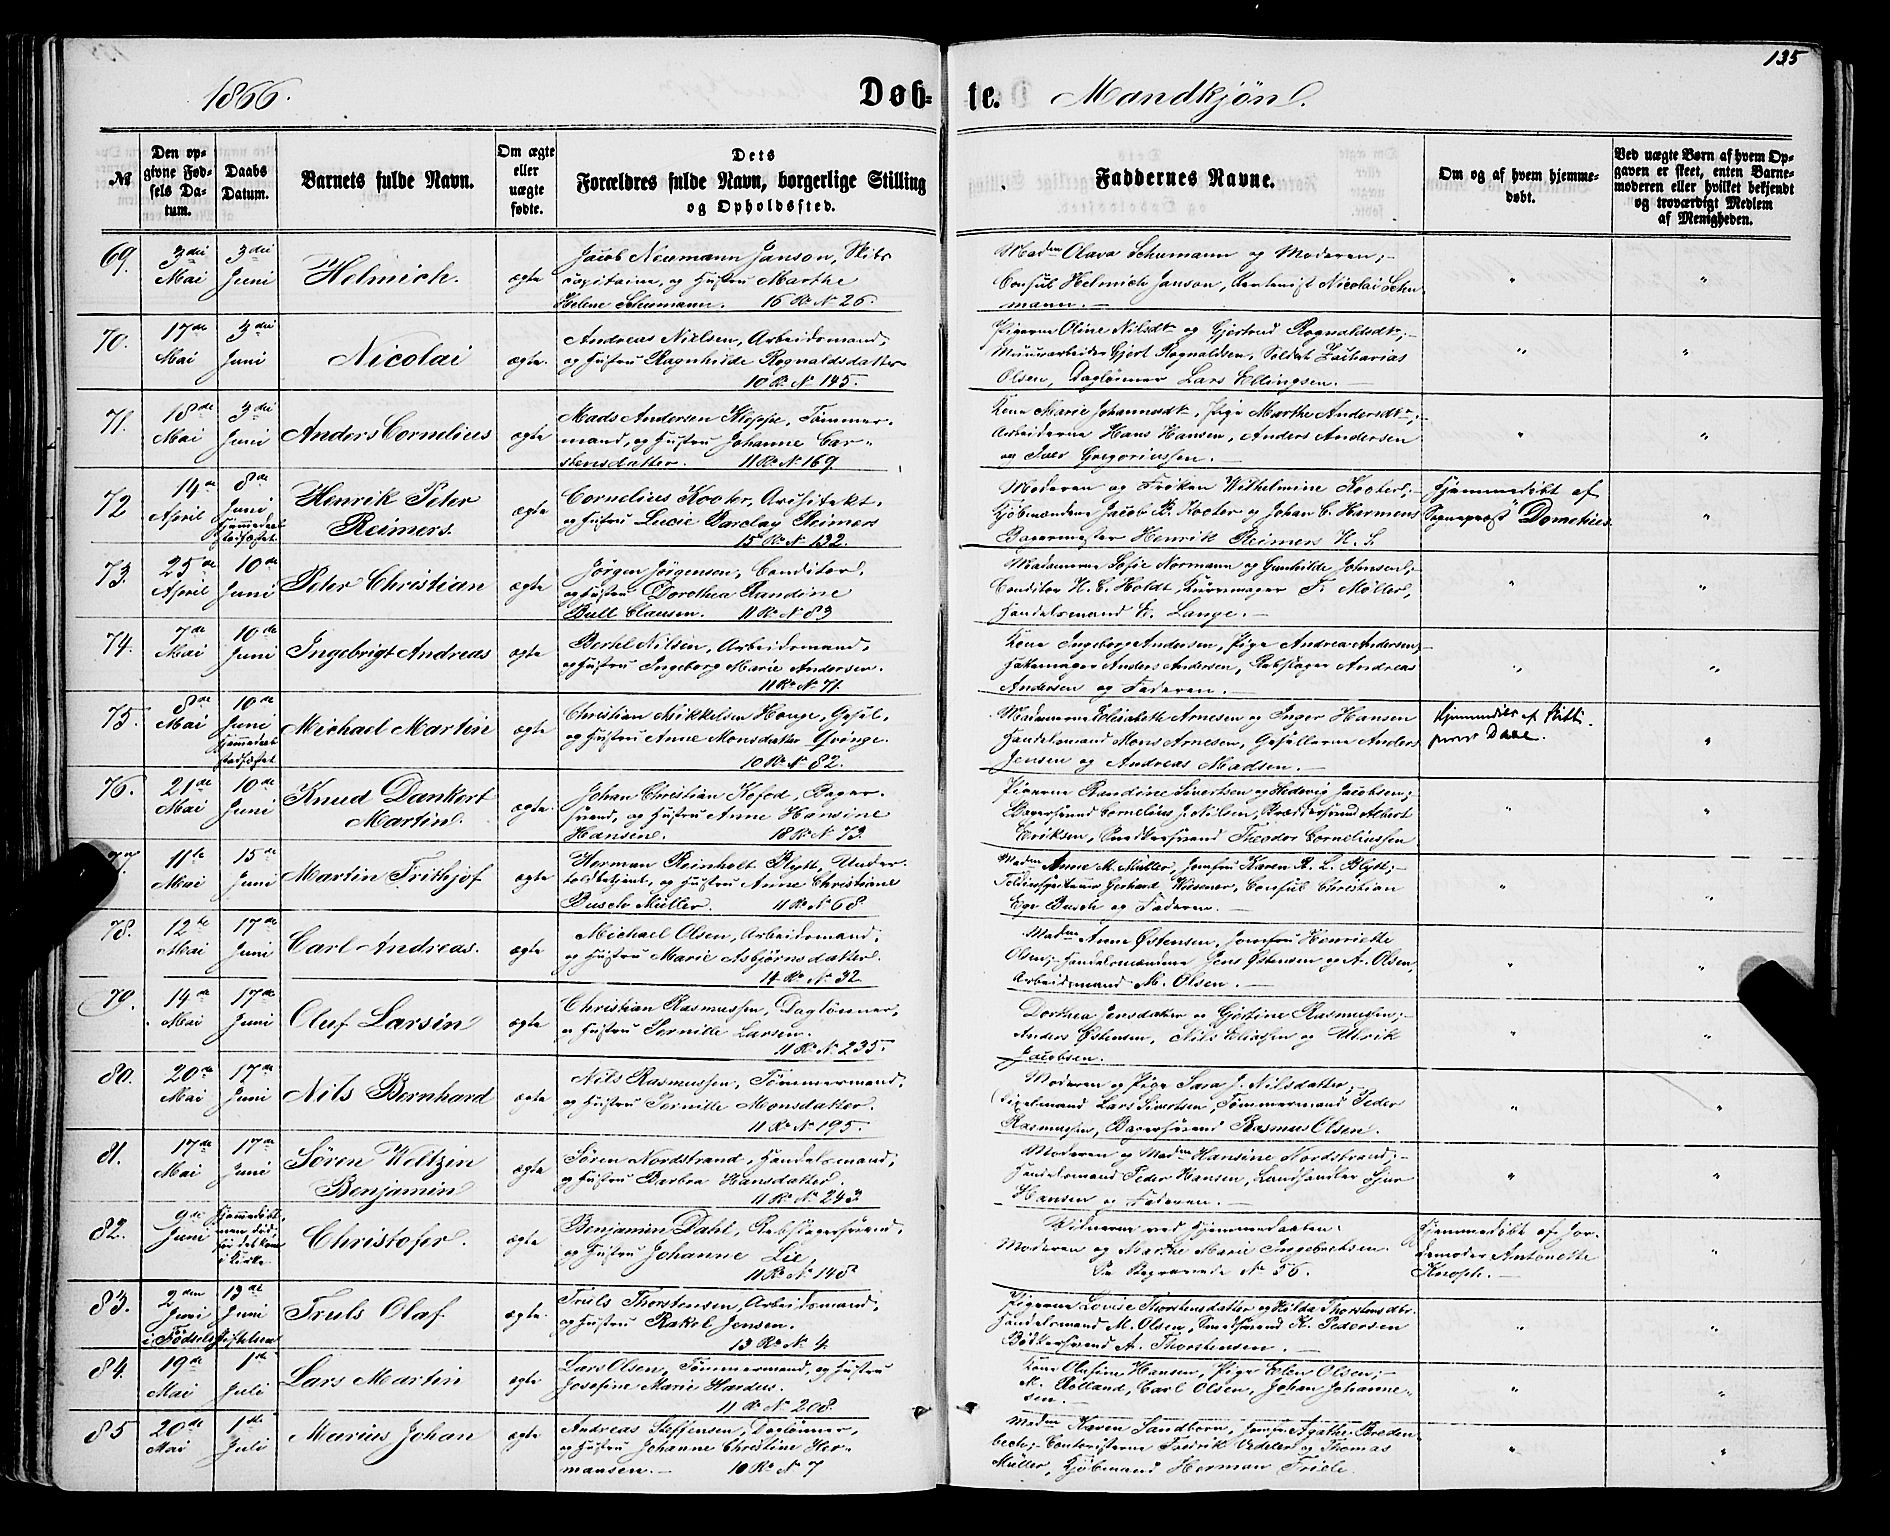 135
1866.
Døb- te. Mandkjön.
№
Den opgivne Fødsels Datum.
Daabs Datum.
Barnets fulde Navn.
Om ægte eller uægte fødte.
Dets Forældres fulde Navn, borgerlige Stilling og Opholdssted.
Faddernes Navne.
Om og af hvem hjemmedøbt.
Ved uægte Børn af hvem Opgaven er skeet, enten Barnemoderen eller hvilket bekjendt og troværdigt Medlem af Menigheden.
69. 3die Mai 3die Juni Helmich. ægte
Jacob Neumann Janson, Skibs
capitaine, og Hustru Marthe
Helene Schumann. 16 R. N 26.
Madm Olava Schumann og Moderen;
Consul Helmich Janson, Nicolai Schu
mann.
70. 17de Mai 3die Juni Nicolai ægte.
Andreas Nielsen, Arbeidsmand,
og Hustru Ragnhilde Rognaldsdatter
10 R. N 145.
Pigerne Oline Nilsdr og Gjertrud Rognaldsdr;
Muurarbeider Gjert Rognaldsen, Soldat Zacharias
Olsen, Dagløinner Lars Ellingsen.
71. 18de Mai 3die Juni Anders Cornelius ægte
Mads Andersen Kleppe, Tømmer-
mand, og Hustru Johanne Car-
stensdatter. 11 R. N 169
Kone Marie Johannesdr, Pige Marthe Andersdr;
Arbeiderne Hans Hansen, Anders Andersen
og Iver Gregoriussen.
72 14de April 8de Juni Hjemmedaab stadfæstet Henrik Peter Reimers. ægte
Cornelius Kooter, Architekt,
og Hustru Lucie Barclay Reimers
15 R. N 132.
Moderen og Frøken Wilhelmine Kooter;
Kjøbmændene Jacob K. Kooter og Johan C. Harmens
Bagermester Henrik Reimers H. S.
Hjemmedöbt af
Sogneprest Dometius
73. 25de April 10de Juni Peter Christian ægte
Jørgen Jørgensen, Conditor,
og Hustru Dorothea Randine
Bull Clausen. 11 R. N 83
Madamerne Sofie Normann og Gunhilde Johnsen;
Conditor H. C. Holdt, Kurvemager F. Møller,
Handelsmand H. Lange.
74. 7de Mai 10de Juni Ingebrigt Andreas ægte
Berthel Nilsen, Arbeidsmand,
og Hustru Ingeborg Marie Andersen.
11 R. N 71.
Kone Ingeborg Andersen, Pige Andrea Andersen;
Anders Andersen, Rebslager Andreas
Andersen og Faderen.
75. 8de Mai 10de Juni Hjemmedaab stadfæstet Michael Martin ægte
Christian Mikkelsen Hauge, Gesel,
og Hustru Anne Monsdatter
10 R. N 82.
Madamerne Elisabeth Arnesen og Inger Hansen
Handelsmand Mons Arnesen, Gesellerne Anders
Jensen og Andreas Madsen.
76. 21de Mai 10de Juni Knud Dankert Martin. ægte
Johan Christian Kofod, Bager-
svend, og Hustru Anne Hansine
Hansen. 18 R. N 73.
Pigerne Randine Sivertsen og Hedevig Jacobsen;
Bagersvend Cornelius J. Nilsen, Skræddersvend Albert
Eriksen, Snedkersvend Theodor Corneliussen
11te Mai 15de Juni Martin Frithjof ægte
Herman Reinholt Blytt, Under-
toldbetjent, og Hustru Anne Christine
Busch Müller. 11 R. N 68.
Madm Anne M. Müller, Jomfru Karen R. L. Blytt;
Gerhard Wiesener, Consul Christian
Ege Busch og Faderen.
78. 12te Mai 17de Juni Carl Andreas. ægte
Michael Olsen, Arbeidsmand,
og Hustru Marie Asbjørnsdatter.
14 R. N 32
Madm Anne Østensen, Jomfru Henriette
Olsen; Handelsmændene Jens Østensen og A. Olsen,
Arbeidsmand M. Olsen.
79. 14de Mai 17de Juni Oluf Larsin ægte
Christian Rasmussen, Dagløinner,
og Hustru Pernille Larsen.
11 R. N 235.
Dorthea Jensdatter og Gjertine Rasmussen;
Anders Østensen, Nils Eliassen og Ulrik
Jacobsen.
80. 20de Mai 17de Juni Nils Bernhard ægte
Nils Rasmussen, Tømmermand,
og Hustru Pernille Monsdatter.
11 R. N 195.
Moderen og Pige Sara J. Nilsdatter;
Lars Sivertsen, Tømmermand Peder
Rasmussen, Bagersvend Rasmus Olsen.
81. 17de Mai 17de Juni Søren Weltzin Benjamin ægte
Søren Nordstrand, Handelsmand,
og Hustru Barbra Hansdatter.
11 R. N 243
Moderen og Madm Hansine Nordstrand;
Handelsmand Peder Hansen, Landhandler
Hansen og Faderen.
82. 9de Juni Hjemmedöbt, men död, før det kom i Kirke Christofer. ægte
Benjamin Dahl, Rebslagersvend,
og Hustru Johanne Lie
11 R. N 148
Vidnerne ved Hjemmedaaben:
Moderen og Marthe Marie Ingebretsen.
Se Begravede N 56.
Hjemmedöbt af Jor-
demoder Antonette
Knoph.
83. 2den Juni 13de Juni i Fødselsstiftelsen Truls Olaf ægte.
Truls Thorstensen, Arbeidsmand,
og Hustru Rakel Jensen.
13 R. N 4
Pigerne Lovise Thorstensdatter og Hilda Thorstensdtr.
Handelsmand M. Olsen, Smedsvend K. Pedersen
Bødkersvend A. Thorstensen.
84. 19de Mai 1ste Juli Lars Martin ægte
Lars Olsen, Tømmermand, og Hustru
Josefine Marie Hardus.
11 R. N 208.
Kone Olufine Hansen, Pige Elen Olsen;
M. Rolland, Carl Olsen, Johan Johanne-
sen.
85 20de Mai 1ste Juli Marius Johan ægte
Andreas Steffensen, Dagløinner,
og Hustru Johanne Christine Her-
mansen. 10 R. N 7
Madm Karen Sandborn, Jomfru Agathe Breden-
bech; Contoristerne Fredrik Vedeler og Thomas
Müller, Kjöbmand Herman Friele.